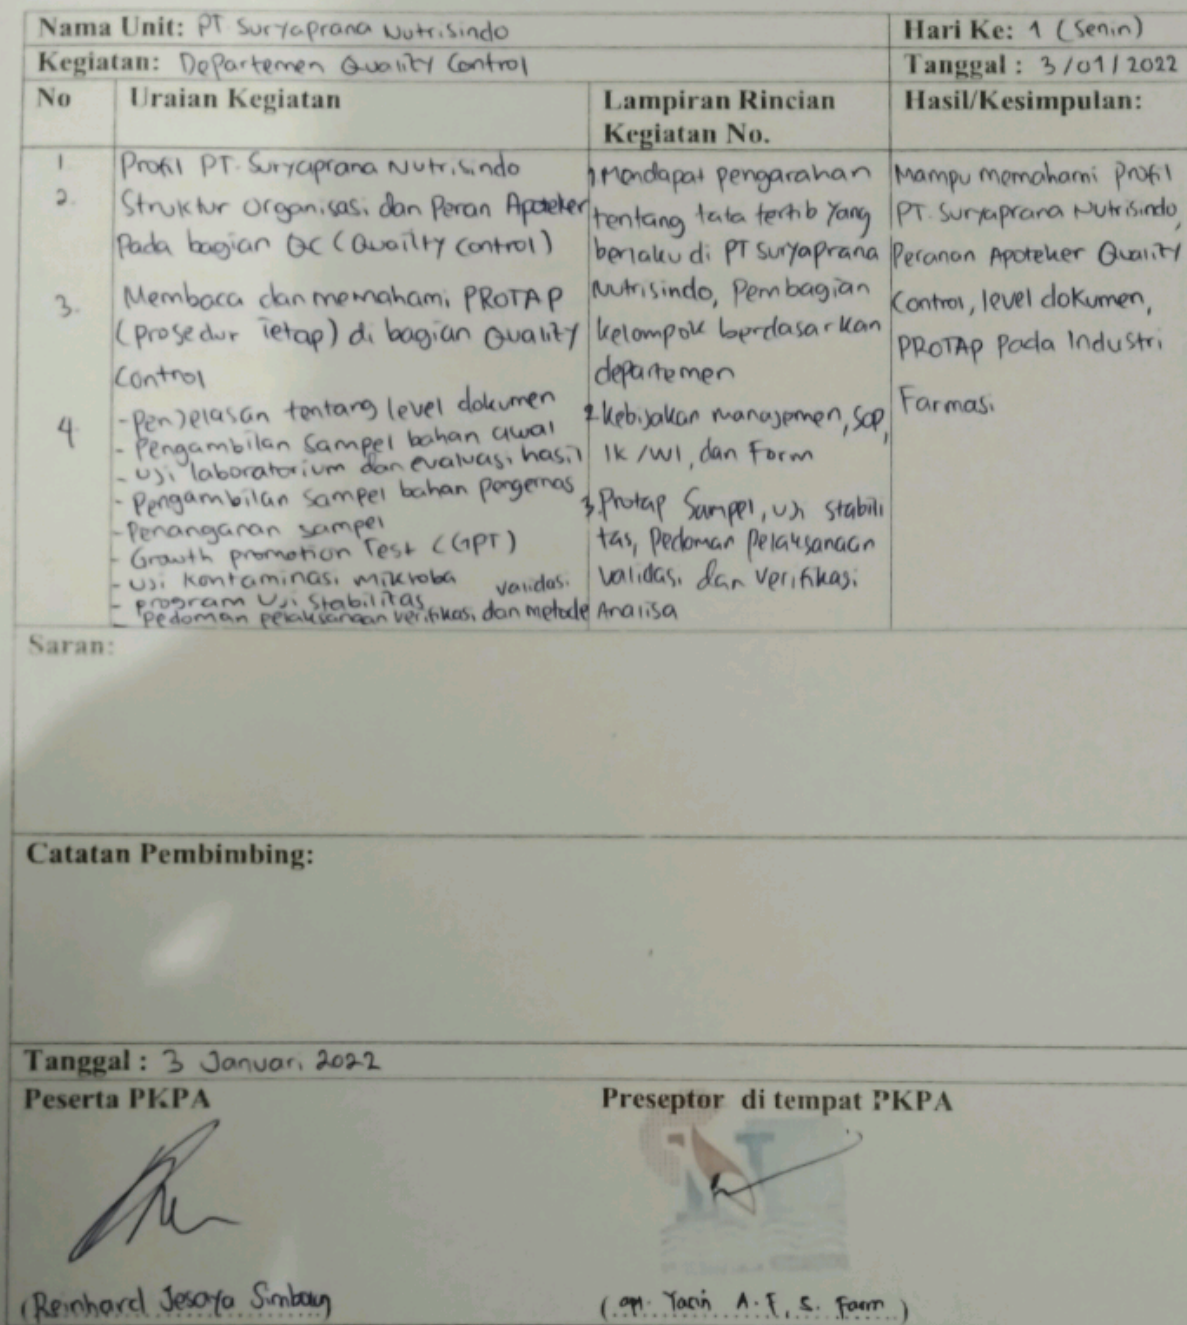 Nama Unit: PT. Suryaprana Nutrisindo
Hari Ke: 1 (Senin)
Kegiatan: Departemen Quality Control
Tanggal : 3/01/2022
No
Uraian Kegiatan
Lampiran Rincian
Kegiatan No.
Hasil/Kesimpulan:
1. Profil PT. Suryaprana Nutrisindo
2. Struktur Organisasi dan Peran Apoteker
Pada bagian QC (Quailty Control)
3. Membaca dan memahami PROTAP
(Prosedur Tetap) di bagian Quality
Control
4. - Penjelasan tentang level dokumen
- Pengambilan Sampel bahan awal
- Uji laboratorium dan evaluasi hasil
- Pengambilan Sampel bahan pengemas
- Penanganan sampel
- Growth promotion Test (GPT)
- Uji Kontaminasi mikroba
- program Uji Stabilitas
- Pedoman pelaksanaan verifikasi dan metode validasi
1. Mendapat pengarahan
tentang tata tertib Yang
berlaku di PT Suryaprana
Nutrisindo, Pembagian
kelompok berdasarkan
departemen
2. Kebijakan manajemen, SOP,
IK /WI, dan Form
3. Protap Sampel, Uji stabili
tas, Pedoman Pelaksanaan
Validasi dan verifikasi
Analisa
Mampu memahami Profil
PT. Suryaprana Nutrisindo,
Peranan Apoteker Quality
Control, level dokumen,
PROTAP Pada Industri
Farmasi
Saran:
Catatan Pembimbing:
Tanggal : 3 Januari 2022
Peserta PKPA
Preseptor di tempat PKPA
(Reinhard Jesaya Simbaun)
(apt. Yacin A.F, S. Farm)